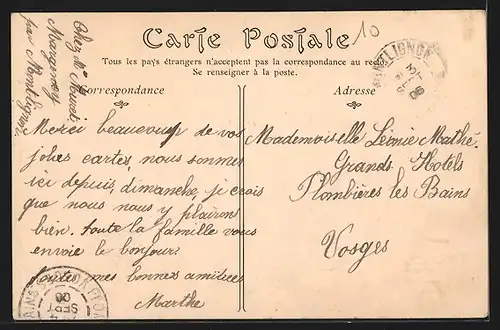 Carte Postale
10
Tous les pays étrangers n'acceptent pas la correspondance au recto
Se renseigner à la poste.
Correspondance
Adresse
Chez Mr
Margency
par Montlignon
Merci beaucoup de vos
jolies cartes, nous sommes
ici depuis dimanche, je crois
que nous nous y plairons
bien. toute la famille vous
envoie le bonjour
toutes mes bonnes amitiées
Marthe
Mademoiselle Léonie Mathé
Grands Hotels
Plombières les Bains
Vosges
SEPT